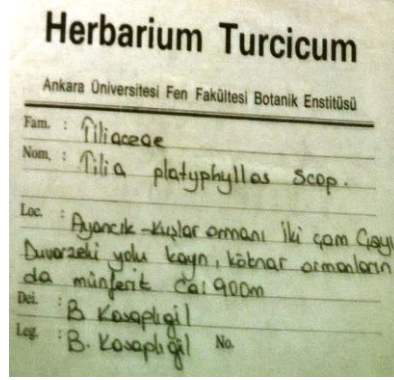 Herbarium Turcicum
Ankara Üniversitesi Fen Fakültesi Botanik Enstitüsü
Fam. : Tiliaceae
Nom. : Tilia platyphyllos Scop.
Loc. : Ayancık - Kuşlar ormanı iki çam Çayı
Duvarzeki yolu kayn, köknar ormanların
da münferit Ca: 900m
Dei. : B Kasaplıgil
Leg. : B. Kasaplıgil No.